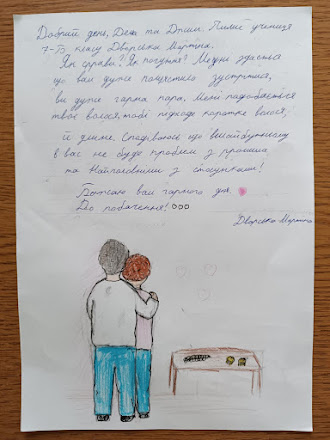 Добрий день, Деня та Даша. Пише учениця
7-Б класу Дворська Мартина.
Як справи? Як почуття? Мені здається
що вам дуже пощастило зустрітися,
ви дуже гарна пара. Мені подобається
твоє волося, тобі подходе коротке волося,
й длине. Сподіваюсь що в майбутньому
в вас не буде проблем з грошима
та найголовніше з стосунками!
Бажаю вам гарного дня.
До побачення!
Дворська Мартина